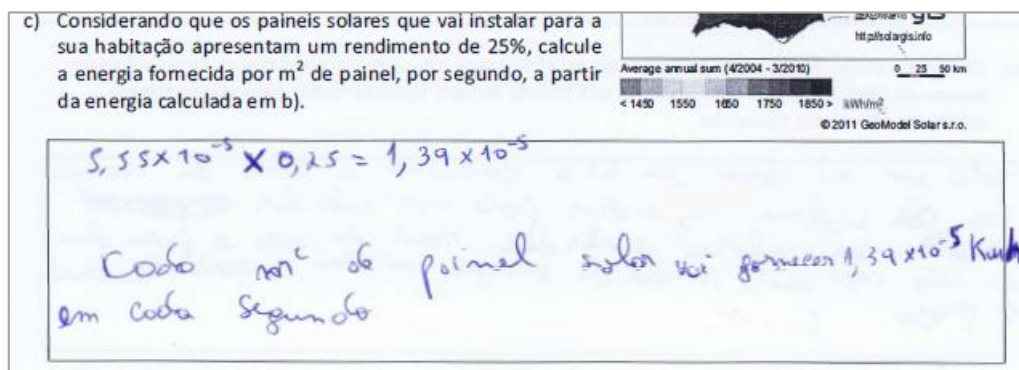 c) Considerando que os paineis solares que vai instalar para a
sua habitação apresentam um rendimento de 25%, calcule
a energia fornecida por m² de painel, por segundo, a partir
da energia calculada em b).
http://solargis.info
Average annual sum (4/2004 - 3/2010)
0 25 50 km
< 1450 1550 1650 1750 1850 > kWh/m²
© 2011 GeoModel Solar s.r.o.
5,55 x 10⁻⁵ x 0,25 = 1,39 x 10⁻⁵
Cada m² de painel solar vai fornecer 1,39 x 10⁻⁵ Kwh
em cada segundo